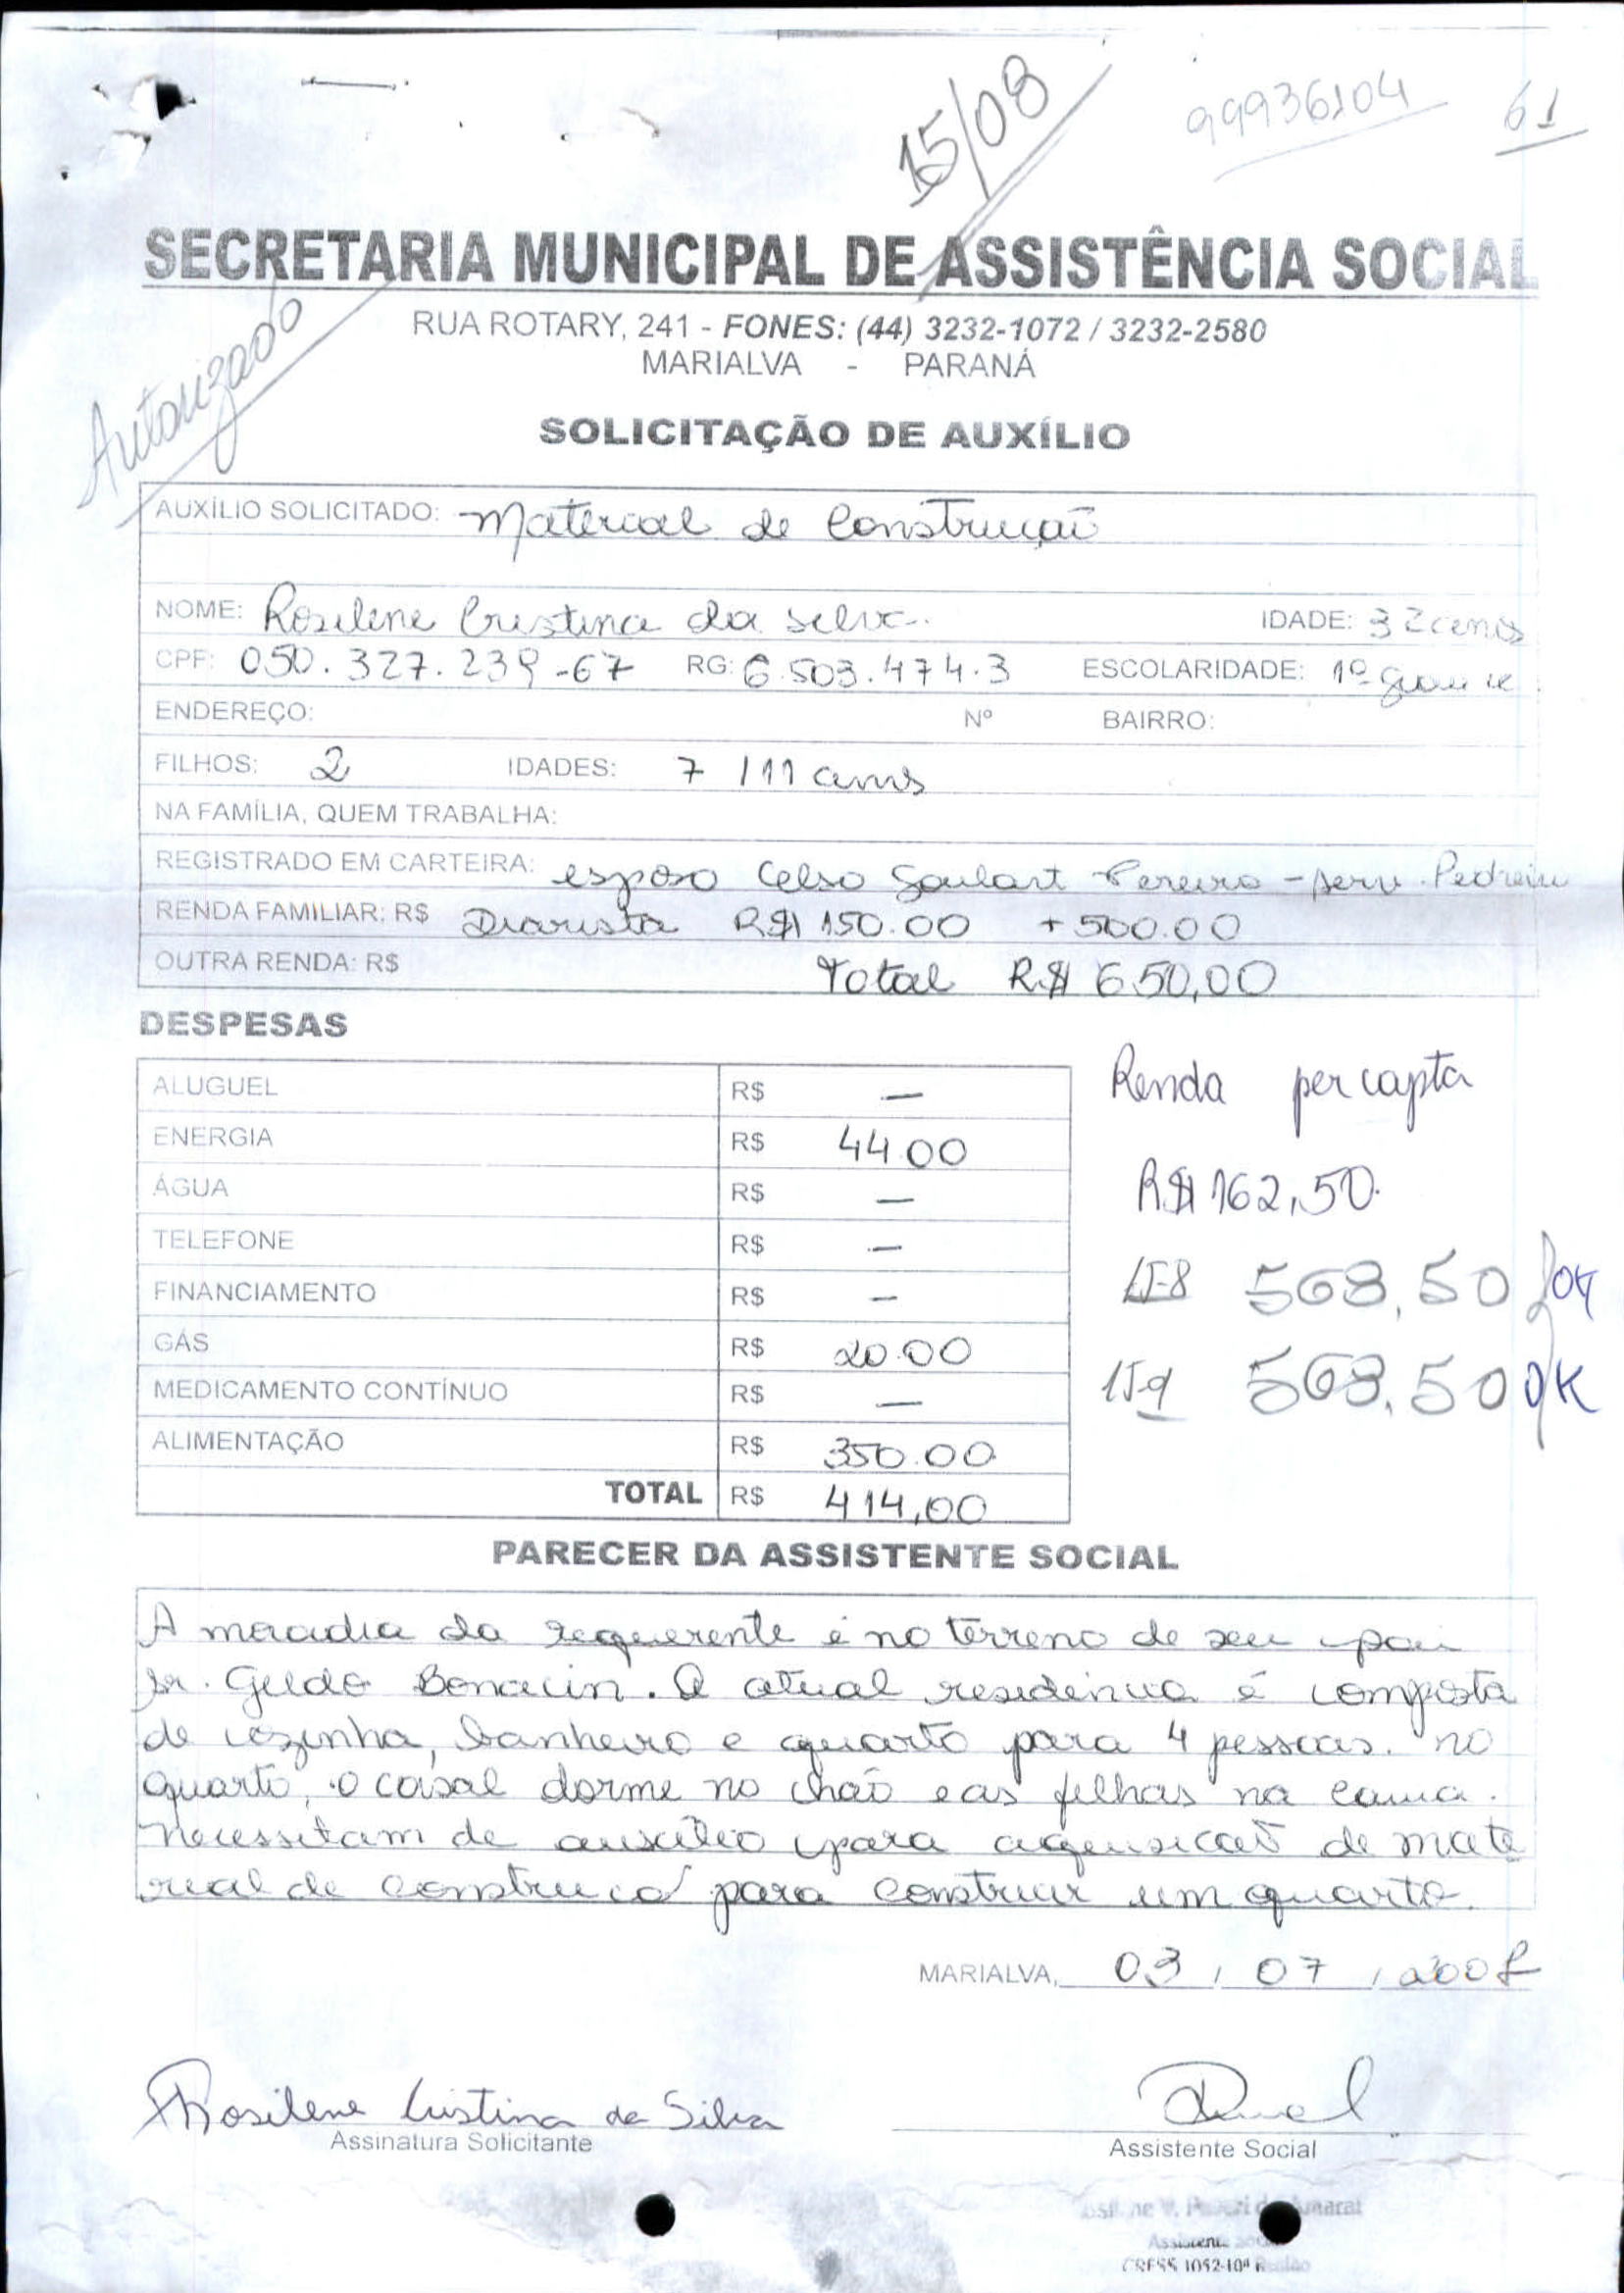 15/08
99936104
61
SECRETARIA MUNICIPAL DE ASSISTÊNCIA SOCIAL
RUA ROTARY, 241 - FONES: (44) 3232-1072 / 3232-2580
MARIALVA - PARANÁ
Autorizado
SOLICITAÇÃO DE AUXÍLIO
AUXÍLIO SOLICITADO: Material de Construção
NOME: Rosilene Cristina da Silva IDADE: 32 anos
CPF: 050.327.239-67 RG: 6.503.474.3 ESCOLARIDADE: 1º grau
ENDEREÇO: Nº BAIRRO:
FILHOS: 2 IDADES: 7 / 11 anos
NA FAMÍLIA, QUEM TRABALHA:
REGISTRADO EM CARTEIRA: esposo Celso Goulart Pereira - serv. Pedreiro
RENDA FAMILIAR: R$ Diarista R$ 150.00 + 500.00
OUTRA RENDA: R$ Total R$ 650,00
DESPESAS
ALUGUEL R$ —
Renda per capta
ENERGIA R$ 44.00
ÁGUA R$ —
R$ 162,50
TELEFONE R$ —
FINANCIAMENTO R$ —
15-8 568,50 OK
GÁS R$ 20.00
MEDICAMENTO CONTÍNUO R$ —
15-9 568,50 OK
ALIMENTAÇÃO R$ 350.00
TOTAL R$ 414,00
PARECER DA ASSISTENTE SOCIAL
A moradia da requerente é no terreno de seu pai
sr. Gildo Bonacin. A atual residência é composta
de cozinha, banheiro e quarto para 4 pessoas. No
quarto, o casal dorme no chão e as filhas na cama.
Necessitam de auxílio para aquisicaõ de mate
rial de construcã para construir um quarto.
MARIALVA, 03 / 07 / 2008
Rosilene Cristina da Silva
Assinatura Solicitante
Assistente Social
Assistente
CRESS 1052-10ª Região